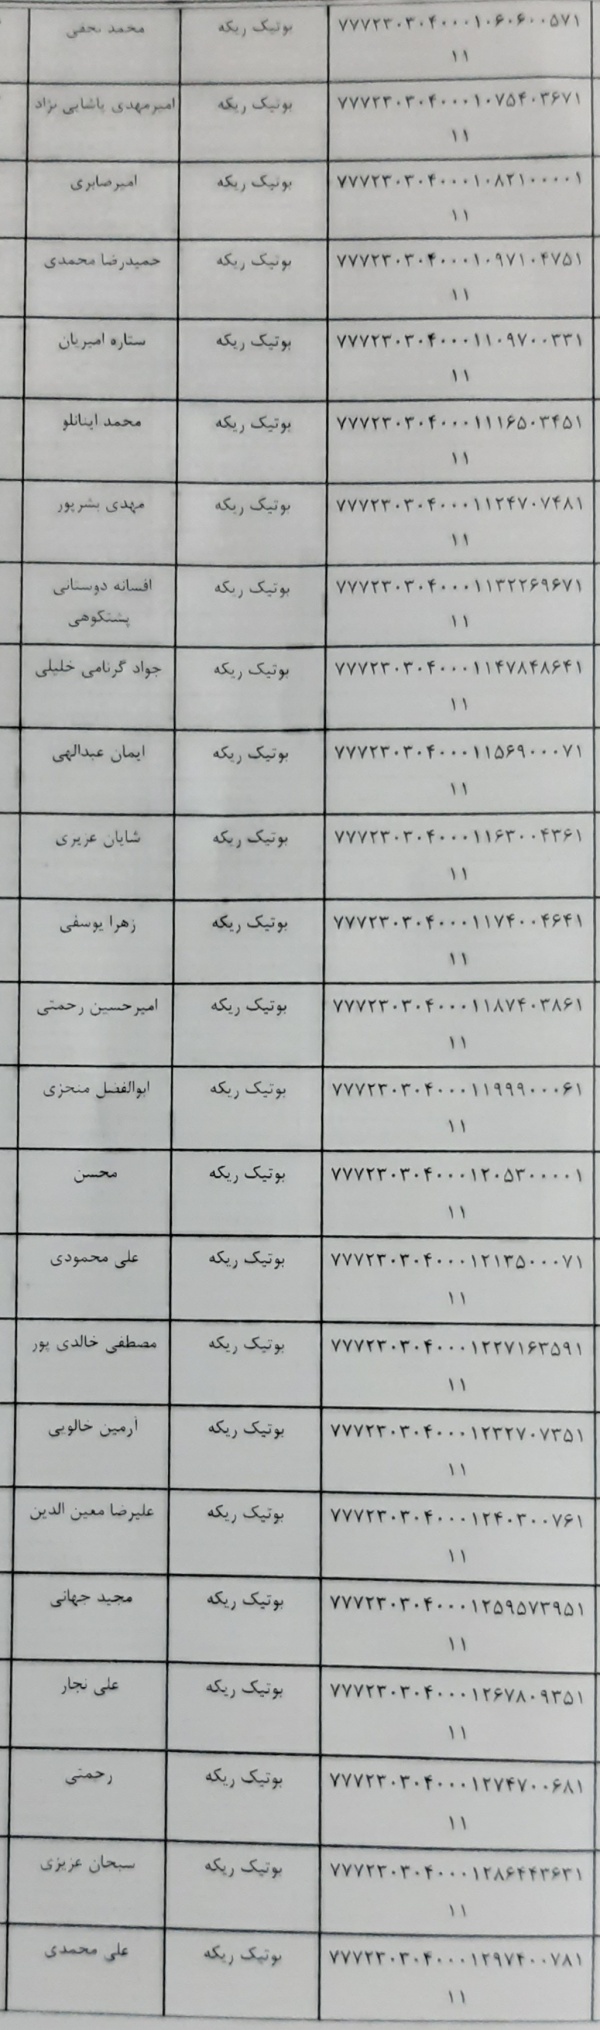 ۷۷۷۲۳۰۳۰۴۰۰۰۱۰۶۰۶۰۰۵۷۱ بوتیک ریکه محمد نجفی
۱۱
۷۷۷۲۳۰۳۰۴۰۰۰۱۰۷۵۴۰۳۶۷۱ بوتیک ریکه امیرمهدی پاشایی نژاد
۱۱
۷۷۷۲۳۰۳۰۴۰۰۰۱۰۸۲۱۰۰۰۰۱ بوتیک ریکه امیرصابری
۱۱
۷۷۷۲۳۰۳۰۴۰۰۰۱۰۹۷۱۰۴۷۵۱ بوتیک ریکه حمیدرضا محمدی
۱۱
۷۷۷۲۳۰۳۰۴۰۰۰۱۱۰۹۷۰۰۳۳۱ بوتیک ریکه ستاره امیریان
۱۱
۷۷۷۲۳۰۳۰۴۰۰۰۱۱۱۶۵۰۳۴۵۱ بوتیک ریکه محمد اینانلو
۱۱
۷۷۷۲۳۰۳۰۴۰۰۰۱۱۲۴۷۰۷۴۸۱ بوتیک ریکه مهدی بشرپور
۱۱
۷۷۷۲۳۰۳۰۴۰۰۰۱۱۳۲۲۶۹۶۷۱ بوتیک ریکه افسانه دوستانی
۱۱ پشتکوهی
۷۷۷۲۳۰۳۰۴۰۰۰۱۱۴۷۸۴۸۶۴۱ بوتیک ریکه جواد گرنامی خلیلی
۱۱
۷۷۷۲۳۰۳۰۴۰۰۰۱۱۵۶۹۰۰۰۷۱ بوتیک ریکه ایمان عبدالهی
۱۱
۷۷۷۲۳۰۳۰۴۰۰۰۱۱۶۳۰۰۴۳۶۱ بوتیک ریکه شایان عزیزی
۱۱
۷۷۷۲۳۰۳۰۴۰۰۰۱۱۷۴۰۰۴۶۴۱ بوتیک ریکه زهرا یوسفی
۱۱
۷۷۷۲۳۰۳۰۴۰۰۰۱۱۸۷۴۰۳۸۶۱ بوتیک ریکه امیرحسین رحمتی
۱۱
۷۷۷۲۳۰۳۰۴۰۰۰۱۱۹۹۹۰۰۰۶۱ بوتیک ریکه ابوالفضل منجزی
۱۱
۷۷۷۲۳۰۳۰۴۰۰۰۱۲۰۵۳۰۰۰۰۱ بوتیک ریکه محسن
۱۱
۷۷۷۲۳۰۳۰۴۰۰۰۱۲۱۳۵۰۰۰۷۱ بوتیک ریکه علی محمودی
۱۱
۷۷۷۲۳۰۳۰۴۰۰۰۱۲۲۷۱۶۳۵۹۱ بوتیک ریکه مصطفی خالدی پور
۱۱
۷۷۷۲۳۰۳۰۴۰۰۰۱۲۳۲۷۰۷۳۵۱ بوتیک ریکه آرمین خالویی
۱۱
۷۷۷۲۳۰۳۰۴۰۰۰۱۲۴۰۳۰۰۷۶۱ بوتیک ریکه علیرضا معین الدین
۱۱
۷۷۷۲۳۰۳۰۴۰۰۰۱۲۵۹۵۷۳۹۵۱ بوتیک ریکه مجید جهانی
۱۱
۷۷۷۲۳۰۳۰۴۰۰۰۱۲۶۷۸۰۹۳۵۱ بوتیک ریکه علی نجار
۱۱
۷۷۷۲۳۰۳۰۴۰۰۰۱۲۷۴۷۰۰۶۸۱ بوتیک ریکه رحمتی
۱۱
۷۷۷۲۳۰۳۰۴۰۰۰۱۲۸۶۴۴۳۶۳۱ بوتیک ریکه سبحان عزیزی
۱۱
۷۷۷۲۳۰۳۰۴۰۰۰۱۲۹۷۴۰۰۷۸۱ بوتیک ریکه علی محمدی
۱۱